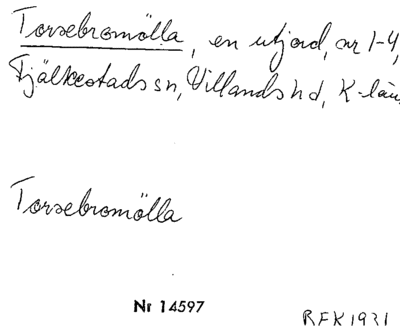 Torsebromölla, en utjord, nr 1-4,
Fjälkestads sn, Villands hd, K-län
Torsebromölla
Nr 14597
RFK 1931